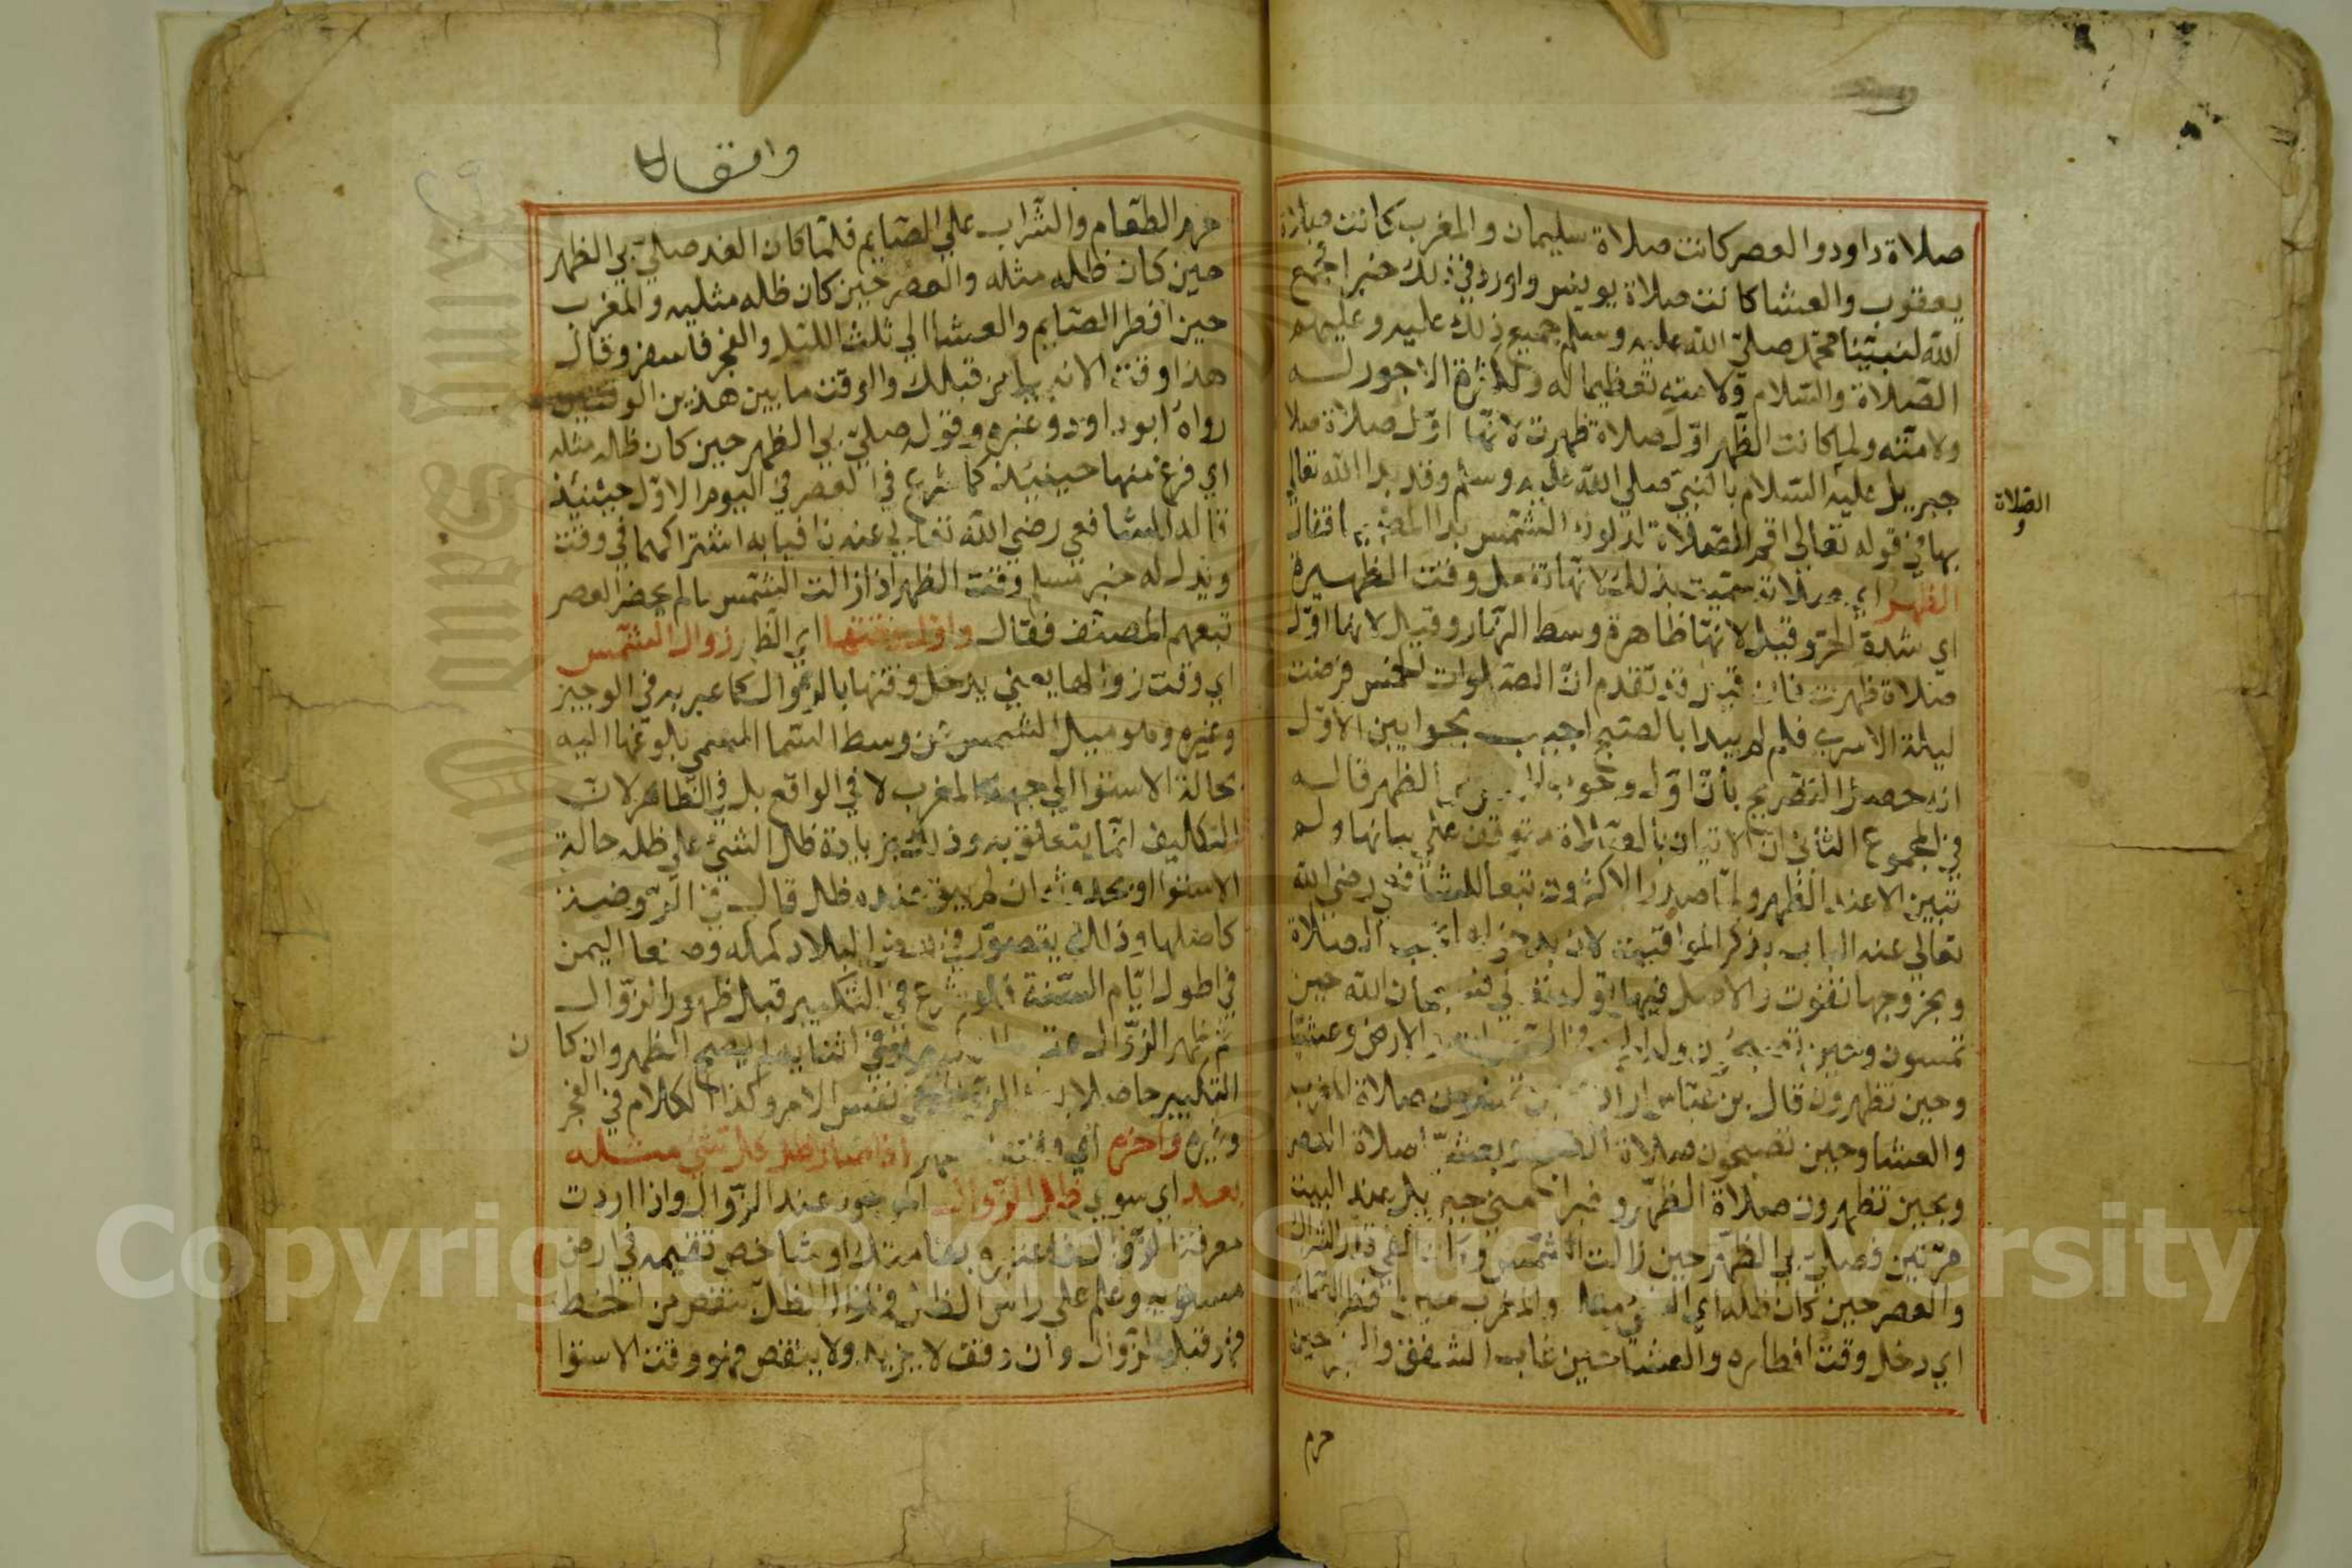 صلاة داود والعصر كانت صلاة سليمان والمغرب كانت صلاة
يعقوب والعشا كانت صلاة يونس واورد في ذلك خبرا فجمع
الله لنبينا محمد صلى الله عليه وسلم جميع ذلك عليه وعليهم
الصلاة والسلام ولامته تعظيما له ولكثرة الاجور له
ولامته ولما كانت الظهر اول صلاة ظهرت لانها اول صلاة صلا
جبريل عليه السلام بالنبي صلي الله عليه وسلم وقد بدا الله تعالي
بها في قوله تعالي اقم الصلاة لدلوك الشمس بدا المصنف بها فقال
الصلاة
الظهر اي صلاته سميت بذلك لانها تفعل وقت الظهيرة
اي شدة الحر وقيل لانها ظاهرة وسط النهار وقيل لانها اول
صلاة ظهرت فان قيل قد تقدم ان الصلوات الخمس فرضت
ليلة الاسري فلم لم يبدا بالصبح اجيب بجوابين الاول
انه حصل التصريح بان اول وجوب الخمس من الظهر قاله
في المجموع الثاني ان الاتيان بالصلاة متوقف علي بيانها ولم
تتبين الا عند الظهر ولما صدر الاكثرون تبعا للشافعي رضي الله
تعالي عنه الباب بذكر المواقيت لان بدخولها تجب الصلاة
وبخروجها تفوت والاصل فيها قوله تعالي فسبحان الله حين
تمسون وحين تصبحون وله الحمد في السموات والارض وعشيا
وحين تظهرون قال بن عباس اراد بحين تمسون صلاة المغرب
والعشا وحين تصبحون صلاة الصبح وبعشيا صلاة العصر
وبحين تظهرون صلاة الظهر وخبر امني جبريل عند البيت
مرتين فصلي بي الظهر حين زالت الشمس وكان الفي قدر الشراك
والعصر حين كان ظله اي الشي مثله والمغرب حين افطر الصايم
اي دخل وقت افطاره والعشا حين غاب الشفق والفجر حين
حرم
وانتقالا
حرم الطعام والشراب علي الصايم فلما كان الغد صلي بي الظهر
حين كان ظله مثله والعصر حين كان ظله مثليه والمغرب
حين افطر الصايم والعشا الي ثلث الليل والفجر فاسفر وقال
هذا وقت الانبيا من قبلك والوقت ما بين هذين الوقتين
رواه ابو داود وغيره وقوله صلي بي الظهر حين كان ظله مثله
اي فرغ منها حينيذ كما شرع في العصر في اليوم الاول حينئيذ
قاله الشافعي رضي الله تعالي عنه نافيا به اشتراكهما في وقت
ويدل له خبر مسلم وقت الظهر اذا زالت الشمس ما لم يحضر العصر
تبعهم المصنف فقال واول وقتها اي الظهر زوال الشمس
اي وقت زوالها يعني يدخل وقتها بالزوال كما عبر به في الوجيز
وغيره وهو ميل الشمس عن وسط السما المسمي بلوغها اليه
بحالة الاستوا الي جهة المغرب لا في الواقع بل في الظاهر لان
التكليف انما يتعلق به وذلك بزيادة ظل الشي علي ظله حالة
الاستوا او بحدوثه ان لم يبق عنده ظل قال في الروضة
كاصلها وذلك يتصور في بعض البلاد كمكه وصنعا اليمن
في اطول ايام السنة فلو شرع في التكبير قبل ظهور الزوال
ثم ظهر الزوال عقب التكبير او في اثنايه لم يصح الظهر وان كا
ن
التكبير حاصلا بعد الزوال في نفس الامر وكذا الكلام في الفجر
وغيره واخره اي وقت الظهر اذا صار ظل كل شي مثله
بعد اي سوي ظل الزوال الموجود عند الزوال واذا اردت
معرفة الزوال فاعتبره بقامتك او شاخص تقيمه في ارض
مستويه وعلم علي راس الظل فما زال الظل ينقص من الخط
فهو قبل الزوال وان وقف لا يزيد ولا ينقص فهو وقت الاستوا
Copyright © King Saud University